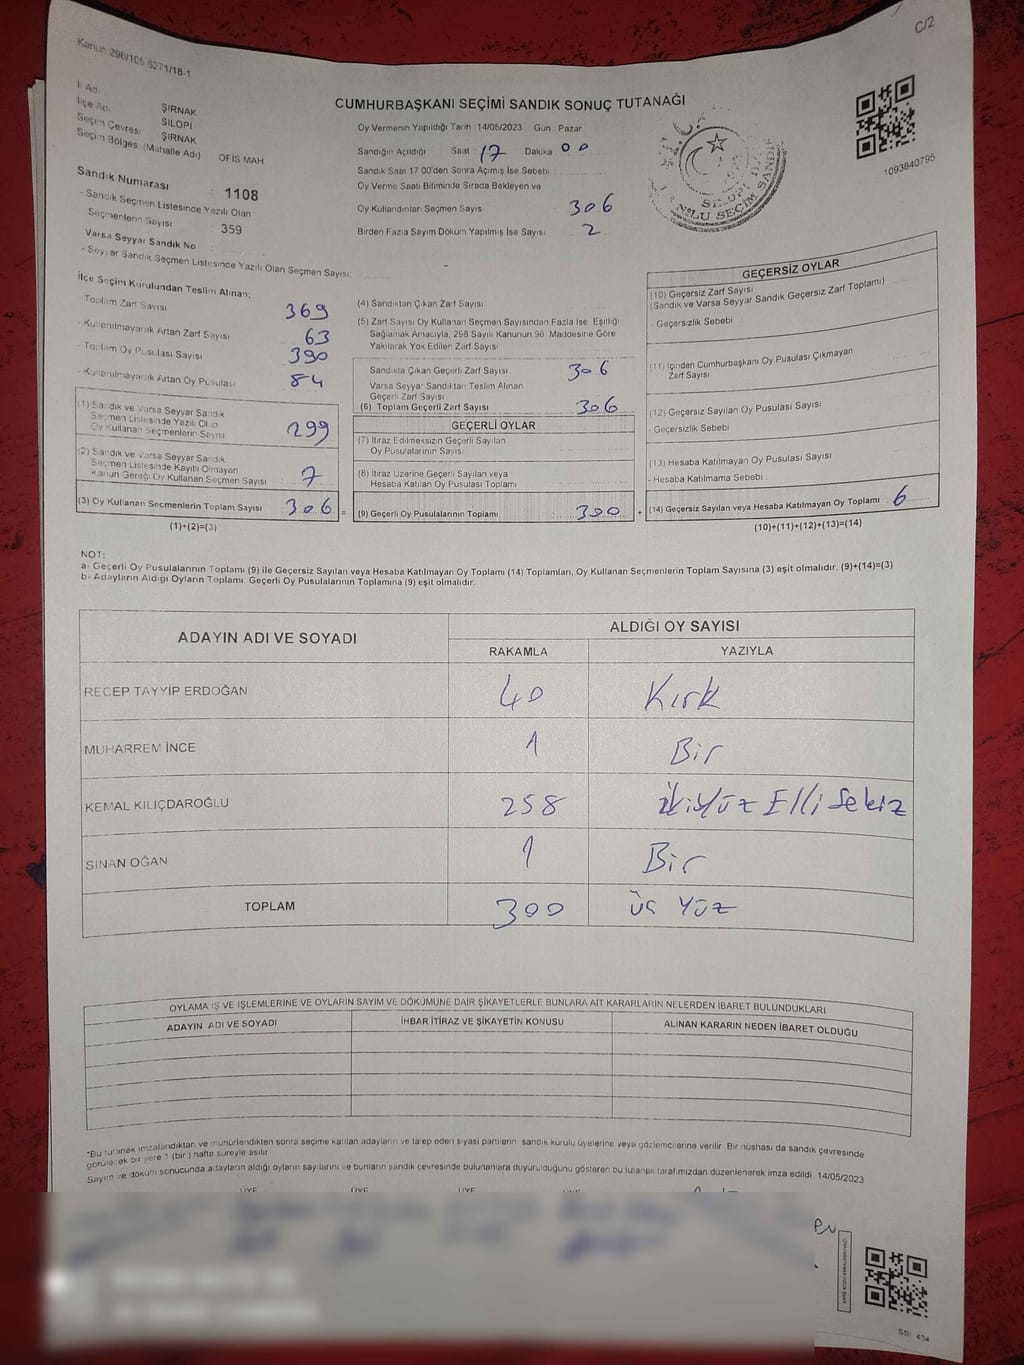 C/2
Kanun 298/105 6271/18-1
CUMHURBAŞKANI SEÇİMİ SANDIK SONUÇ TUTANAĞI
İl Adı ŞIRNAK
İlçe Adı SİLOPİ
Seçim Çevresi ŞIRNAK
Seçim Bölgesi (Mahalle Adı) OFİS MAH
Sandık Numarası : 1108
- Sandık Seçmen Listesinde Yazılı Olan
Seçmenlerin Sayısı : 359
Varsa Seyyar Sandık No
- Seyyar Sandık Seçmen Listesinde Yazılı Olan Seçmen Sayısı: -
Oy Vermenin Yapıldığı Tarih : 14/05/2023 Gün : Pazar
Sandığın Açıldığı Saat : 17 Dakika : 00
Sandık Saat 17:00'den Sonra Açımış İse Sebebi :
Oy Verme Saati Bitiminde Sırada Bekleyen ve
Oy Kullandırılan Seçmen Sayısı 306
Birden Fazla Sayım Döküm Yapılmış İse Sayısı 2
SİLOPİ İLÇE
1 NOLU SEÇİM SANDIK
1093840795
İlçe Seçim Kurulundan Teslim Alınan;
Toplam Zarf Sayısı 369
- Kullanılmayarak Artan Zarf Sayısı 63
- Toplam Oy Pusulası Sayısı 390
- Kullanılmayarak Artan Oy Pusulası 84
(1) Sandık ve Varsa Seyyar Sandık
Seçmen Listesinde Yazılı Olup
Oy Kullanan Seçmenlerin Sayısı 299
(2) Sandık ve Varsa Seyyar Sandık
Seçmen Listesinde Kayıtlı Olmayan
Kanun Gereği Oy Kullanan Seçmen Sayısı : 7
(3) Oy Kullanan Seçmenlerin Toplam Sayısı : 306 =
(1)+(2)=(3)
(4) Sandıktan Çıkan Zarf Sayısı
(5) Zarf Sayısı Oy Kullanan Seçmen Sayısından Fazla İse, Eşitliği
Sağlamak Amacıyla, 298 Sayılı Kanunun 98. Maddesine Göre
Yakılarak Yok Edilen Zarf Sayısı
Sandıkta Çıkan Geçerli Zarf Sayısı 306
Varsa Seyyar Sandıktan Teslim Alınan
Geçerli Zarf Sayısı
(6) Toplam Geçerli Zarf Sayısı 306
GEÇERLİ OYLAR
(7) İtiraz Edilmeksizin Geçerli Sayılan
Oy Pusulalarının Sayısı
(8) İtiraz Üzerine Geçerli Sayılan veya
Hesaba Katılan Oy Pusulası Toplamı
(9) Geçerli Oy Pusulalarının Toplamı 300 +
GEÇERSİZ OYLAR
(10) Geçersiz Zarf Sayısı
(Sandık ve Varsa Seyyar Sandık Geçersiz Zarf Toplamı)
- Geçersizlik Sebebi :
(11) İçinden Cumhurbaşkanı Oy Pusulası Çıkmayan
Zarf Sayısı
(12) Geçersiz Sayılan Oy Pusulası Sayısı
- Geçersizlik Sebebi
(13) Hesaba Katılmayan Oy Pusulası Sayısı
- Hesaba Katılmama Sebebi :
(14) Geçersiz Sayılan veya Hesaba Katılmayan Oy Toplamı : 6
(10)+(11)+(12)+(13)=(14)
NOT:
a- Geçerli Oy Pusulalarının Toplamı (9) ile Geçersiz Sayılan veya Hesaba Katılmayan Oy Toplamı (14) Toplamları, Oy Kullanan Seçmenlerin Toplam Sayısına (3) eşit olmalıdır. (9)+(14)=(3)
b- Adayların Aldığı Oyların Toplamı, Geçerli Oy Pusulalarının Toplamına (9) eşit olmalıdır.
ADAYIN ADI VE SOYADI ALDIĞI OY SAYISI
RAKAMLA YAZIYLA
RECEP TAYYİP ERDOĞAN 40 Kırk
MUHARREM İNCE 1 Bir
KEMAL KILIÇDAROĞLU 258 ikiyüz Elli Sekiz
SİNAN OĞAN 1 Bir
TOPLAM 300 üç Yüz
OYLAMA İŞ VE İŞLEMLERİNE VE OYLARIN SAYIM VE DÖKÜMÜNE DAİR ŞİKAYETLERLE BUNLARA AİT KARARLARIN NELERDEN İBARET BULUNDUKLARI
ADAYIN ADI VE SOYADI İHBAR İTİRAZ VE ŞİKAYETİN KONUSU ALINAN KARARIN NEDEN İBARET OLDUĞU
*Bu tutanak imzalandıktan ve mühürlendikten sonra seçime katılan adayların ve talep eden siyasi partilerin sandık kurulu üyelerine veya gözlemcilerine verilir. Bir nüshası da sandık çevresinde
görülecek bir yere 1 (bir) hafta süreyle asılır.
Sayım ve döküm sonucunda adayların aldığı oyların sayılarını ve bunların sandık çevresinde bulunanlara duyurulduğunu gösteren bu tutanak tarafımızdan düzenlenerek imza edildi. 14/05/2023
ÜYE ÜYE ÜYE
SSI 404